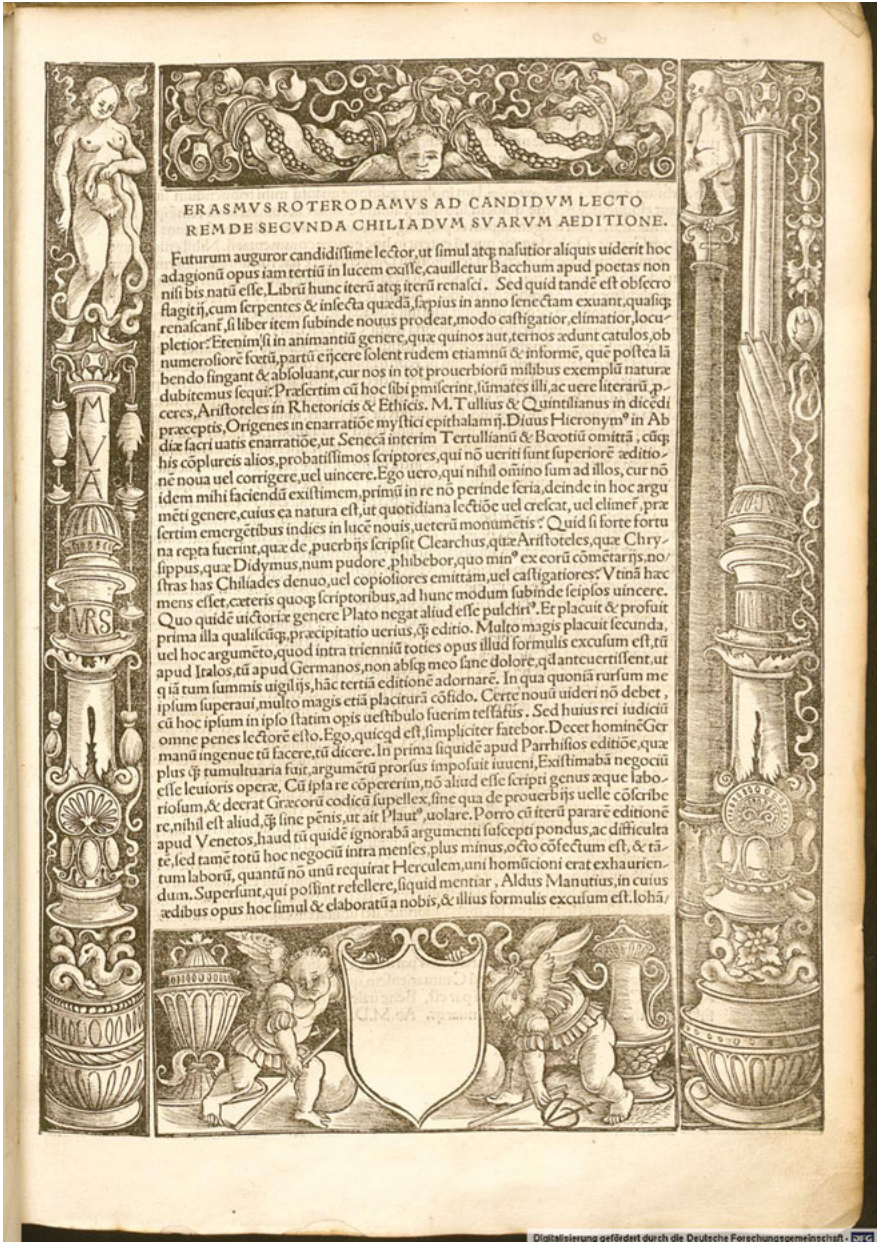 ERASMVS ROTERODAMVS AD CANDIDVM LECTO
REM DE SECVNDA CHILIADVM SVARVM AEDITIONE.
Futurum auguror candidissime lector, ut simul atq; nasutior aliquis uiderit hoc
adagionũ opus iam tertiũ in lucem exisse, cauilletur Bacchum apud poetas non
nisi bis natũ esse, Librũ hunc iterũ atq; iterũ renasci. Sed quid tandẽ est obsecro
flagitij, cum serpentes & insecta quædã, sæpius in anno senectam exuant, quasiq;
renascant̃, si liber item subinde nouus prodeat, modo castigatior, elimatior, locu-
pletior? Etenim si in animantiũ genere, quæ quinos aut, ternos ædunt catulos, ob
numerosiorẽ fœtũ, partũ eijcere solent rudem etiamnũ & informẽ, quẽ postea lã
bendo fingant & absoluant, cur nos in tot prouerbiorũ milibus exemplũ naturæ
dubitemus sequi? Præsertim cũ hoc sibi pmiserint, sũmates illi, ac uere literarũ ,p-
ceres, Aristoteles in Rhetoricis & Ethicis. M. Tullius & Quintilianus in dicẽdi
præceptis, Origenes in enarratiõe mystici epithalamij. Diuus Hieronymꝰ in Ab
diæ sacri uatis enarratiõe, ut Senecã interim Tertullianũ & Bœotiũ omittã, cũq;
his cõplureis alios, probatissimos scriptores, qui nõ ueriti sunt superiorẽ æditio-
nẽ noua uel corrigere, uel uincere. Ego uero, qui nihil om̃ino sum ad illos, cur nõ
idem mihi faciendũ existimem, primũ in re nõ perinde seria, deinde in hoc argu
mẽti genere, cuius ea natura est, ut quotidiana lectiõe uel crescat, uel elimet̃, præ
sertim emergẽtibus indies in lucẽ nouis, ueterũ monumẽtis? Quid si forte fortu
na repta fuerint, quæ de ,puerbijs scripsit Clearchus, quæ Aristoteles, quæ Chry-
sippus, quæ Didymus, num pudore ,phibebor, quo minꝰ ex eorũ cõmẽtarijs, no/
stras has Chiliades denuo, uel copiosiores emittam, uel castigatiores? Vtinã hæc
mens esset, cæteris quoq; scriptoribus, ad hunc modum subinde seipsos uincere.
Quo quidẽ uictoriæ genere Plato negat aliud esse pulchriꝰ. Et placuit & profuit
prima illa qualiscũq;, præcipitatio uerius, q̃ editio. Multo magis placuit secunda,
uel hoc argumẽto, quod intra trienniũ toties opus illud formulis excusum est, tũ
apud Italos, tũ apud Germanos, non absq; meo sane dolore, qd anteuertissent, ut
q iã tum summis uigilijs, hãc tertiã editionẽ adornarẽ. In qua quoniã rursum me
ipsum superaui, multo magis etiã placiturã cõfido. Certe nouũ uideri nõ debet,
cũ hoc ipsum in ipso statim opis uestibulo fuerim testatus. Sed huius rei iudiciũ
omne penes lectorẽ esto. Ego, quicqd est, simpliciter fatebor. Decet hominẽ Ger
manũ ingenue tũ facere, tũ dicere. In prima siquidẽ apud Parrhisios editiõe, quæ
plus q̃ tumultuaria fuit, argumẽtũ prorsus imposuit iuueni, Existimabã negociũ
esse leuioris operæ, Cũ ipsa re cõpererim, nõ aliud esse scripti genus æque labo-
riosum, & deerat Græcorũ codicũ supellex, sine qua de prouerbijs uelle cõscribe
re, nihil est aliud, q̃ sine pẽnis, ut ait Plautꝰ, uolare. Porro cũ iterũ pararẽ editionẽ
apud Venetos, haud tũ quidẽ ignorabã argumenti suscepti pondus, ac difficulta
tẽ, sed tamẽ totũ hoc negociũ intra menses, plus minus, octo cõfectum est, & tã-
tum laborũ, quantũ nõ unũ requirat Herculem, uni homũcioni erat exhaurien-
dum. Supersunt, qui possint refellere, siquid mentiar, Aldus Manutius, in cuius
ædibus opus hoc simul & elaboratũ a nobis, & illius formulis excusum est. Iohã/
M
VA
VRS
Digitalisierung gefördert durch die Deutsche Forschungsgemeinschaft - DFG